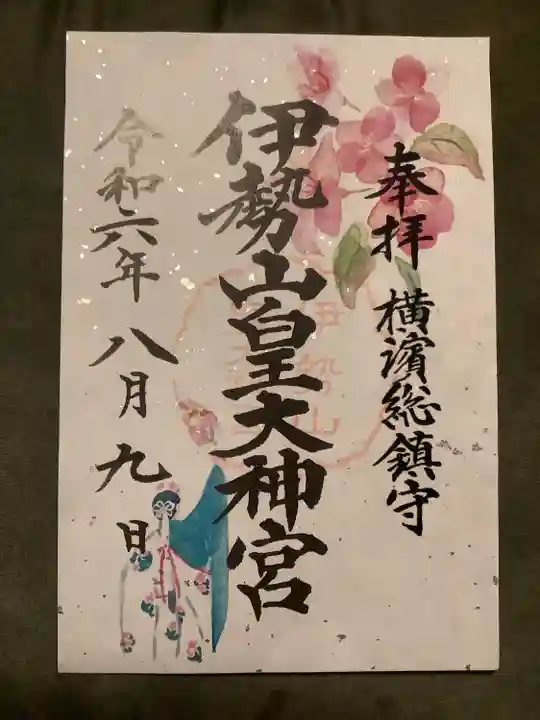 奉拝 横濱総鎮守
伊勢山皇大神宮
令和六年 八月九日